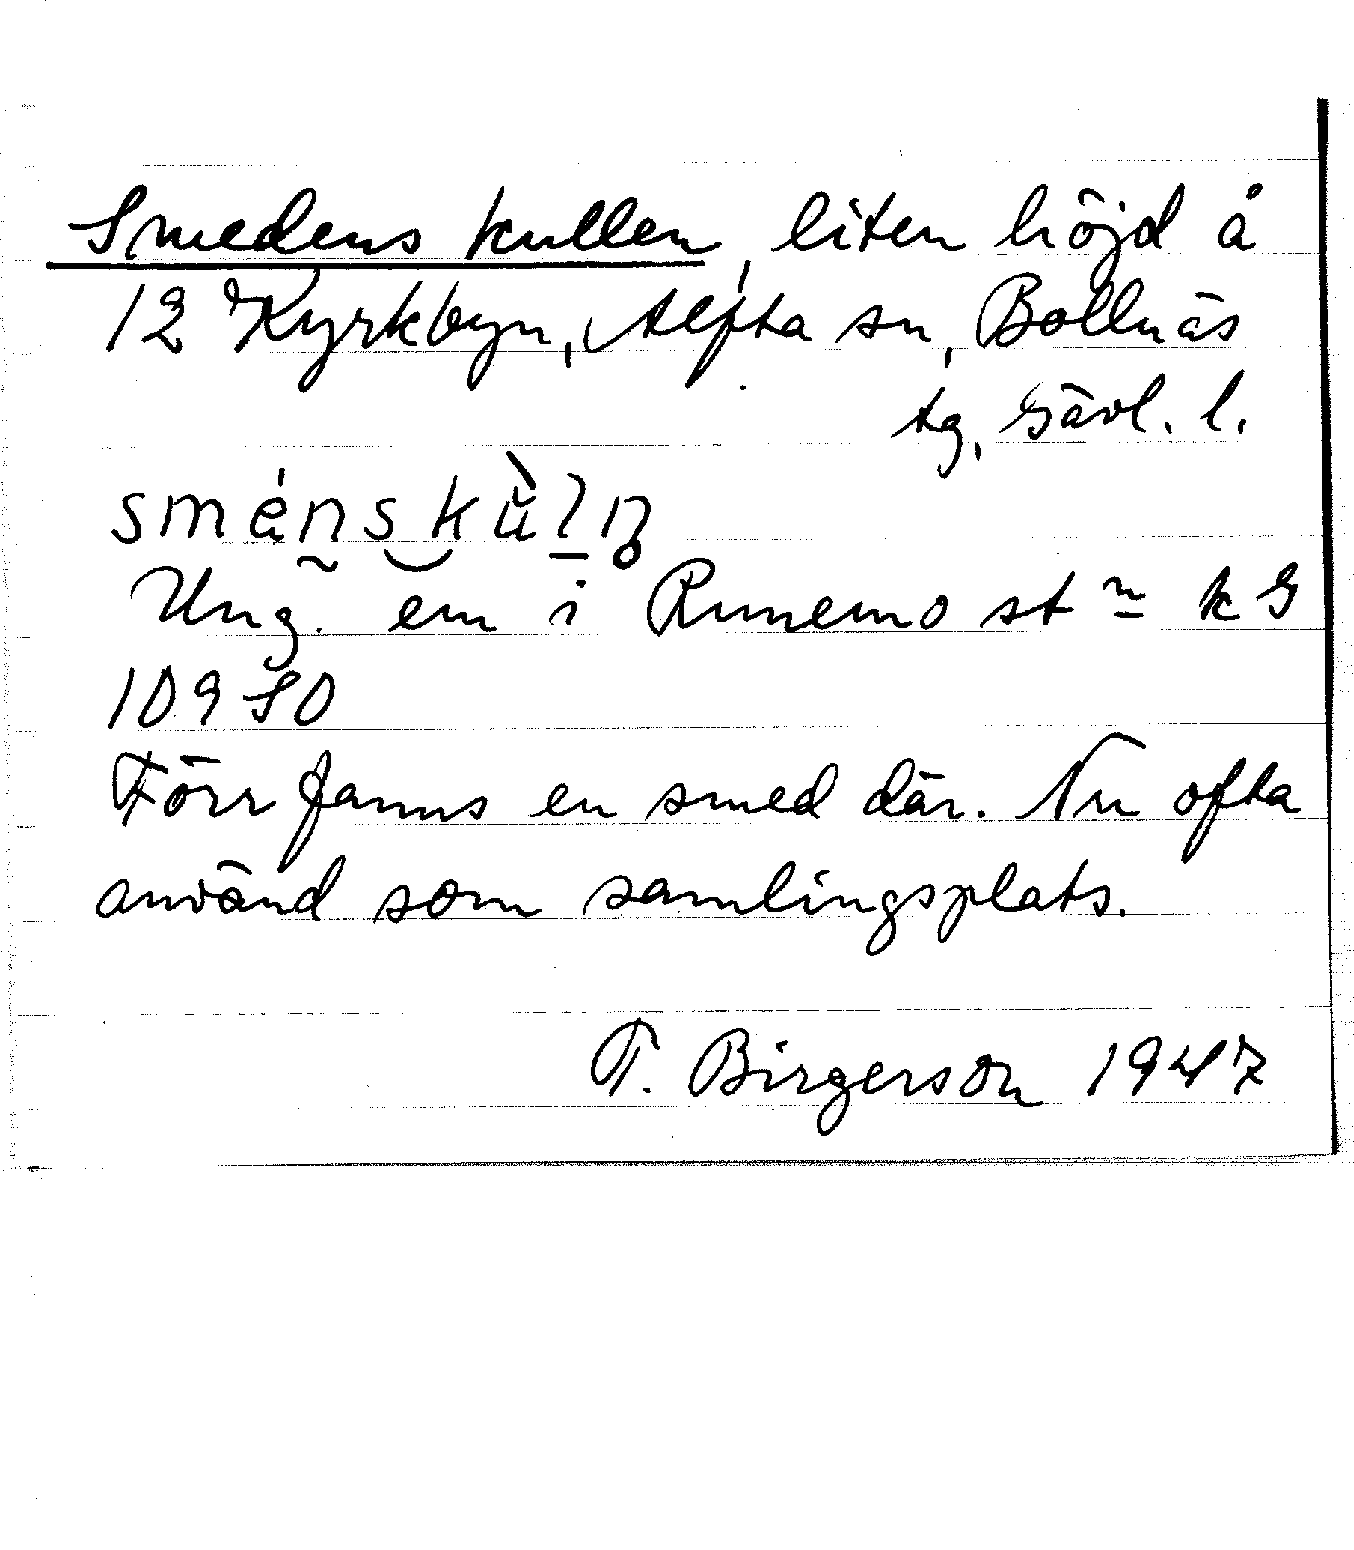 Smedens kullen, liten höjd å
12 Kyrkbyn, Alfta sn, Bollnäs
tg, Gävl. l.
Ung. em i Runemo stn k G
109 SO
Förr fanns en smed där. Nu ofta
använd som samlingsplats.
T. Birgerson 1947